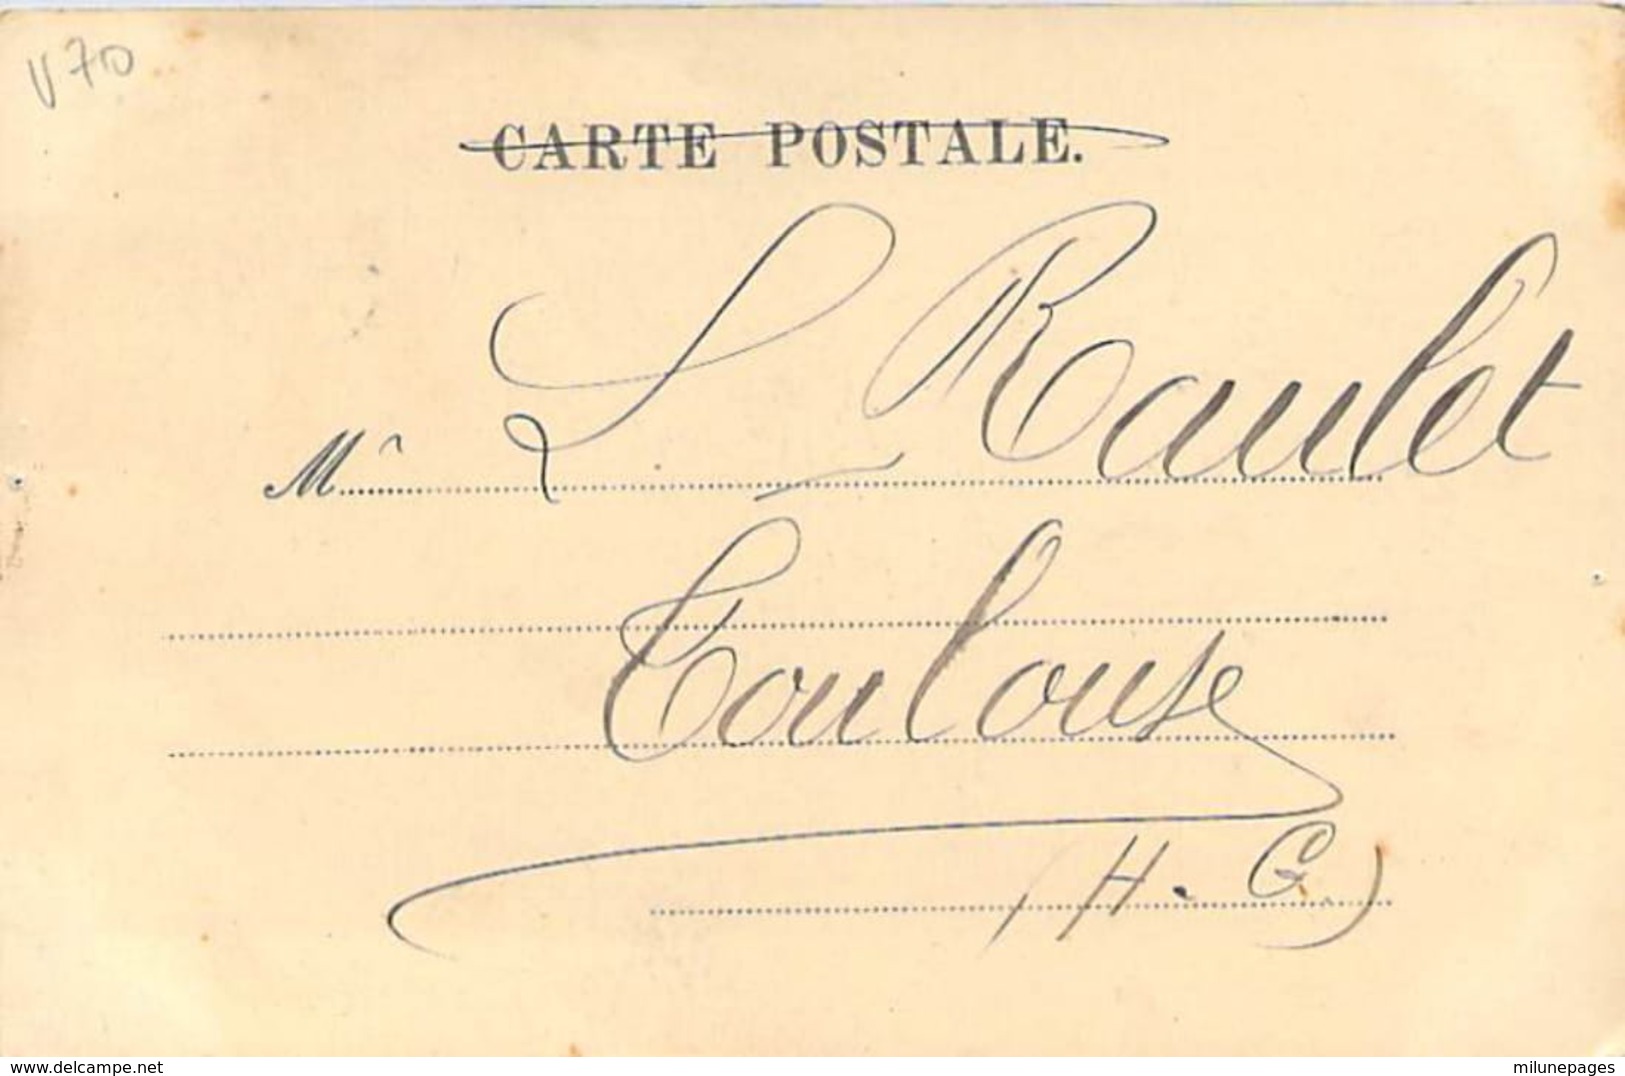 V70
CARTE POSTALE.
Mr L Raulet
Toulouse
(H. G.)
www.delcampe.net
milunepages